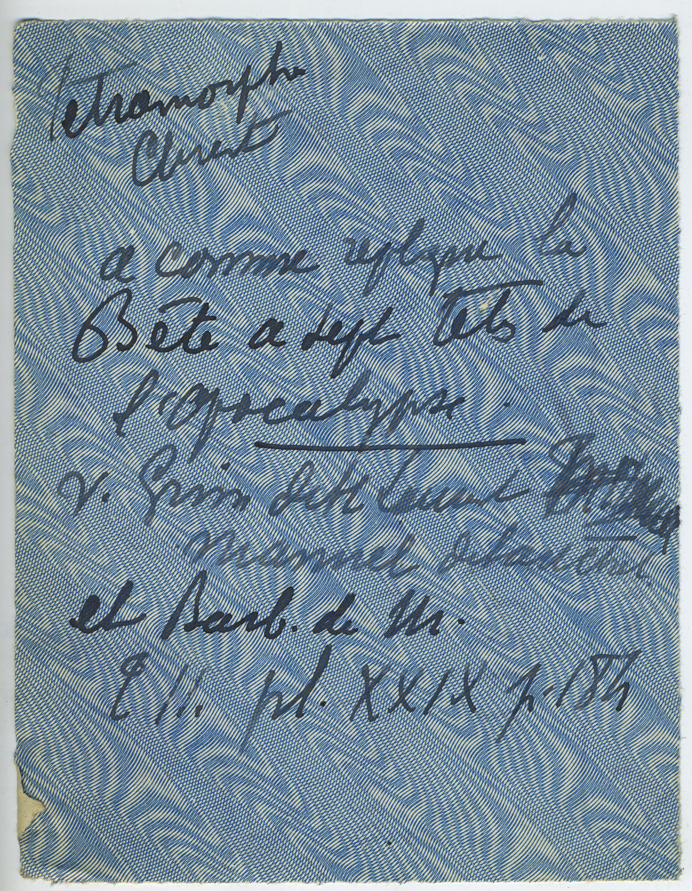 Tetramorphe
a comme replique la
Bête a sept têtes de
l'apocalypse.
v. Grim
manuel
et Barb. de M.
T II. pl. XXIX p. 184